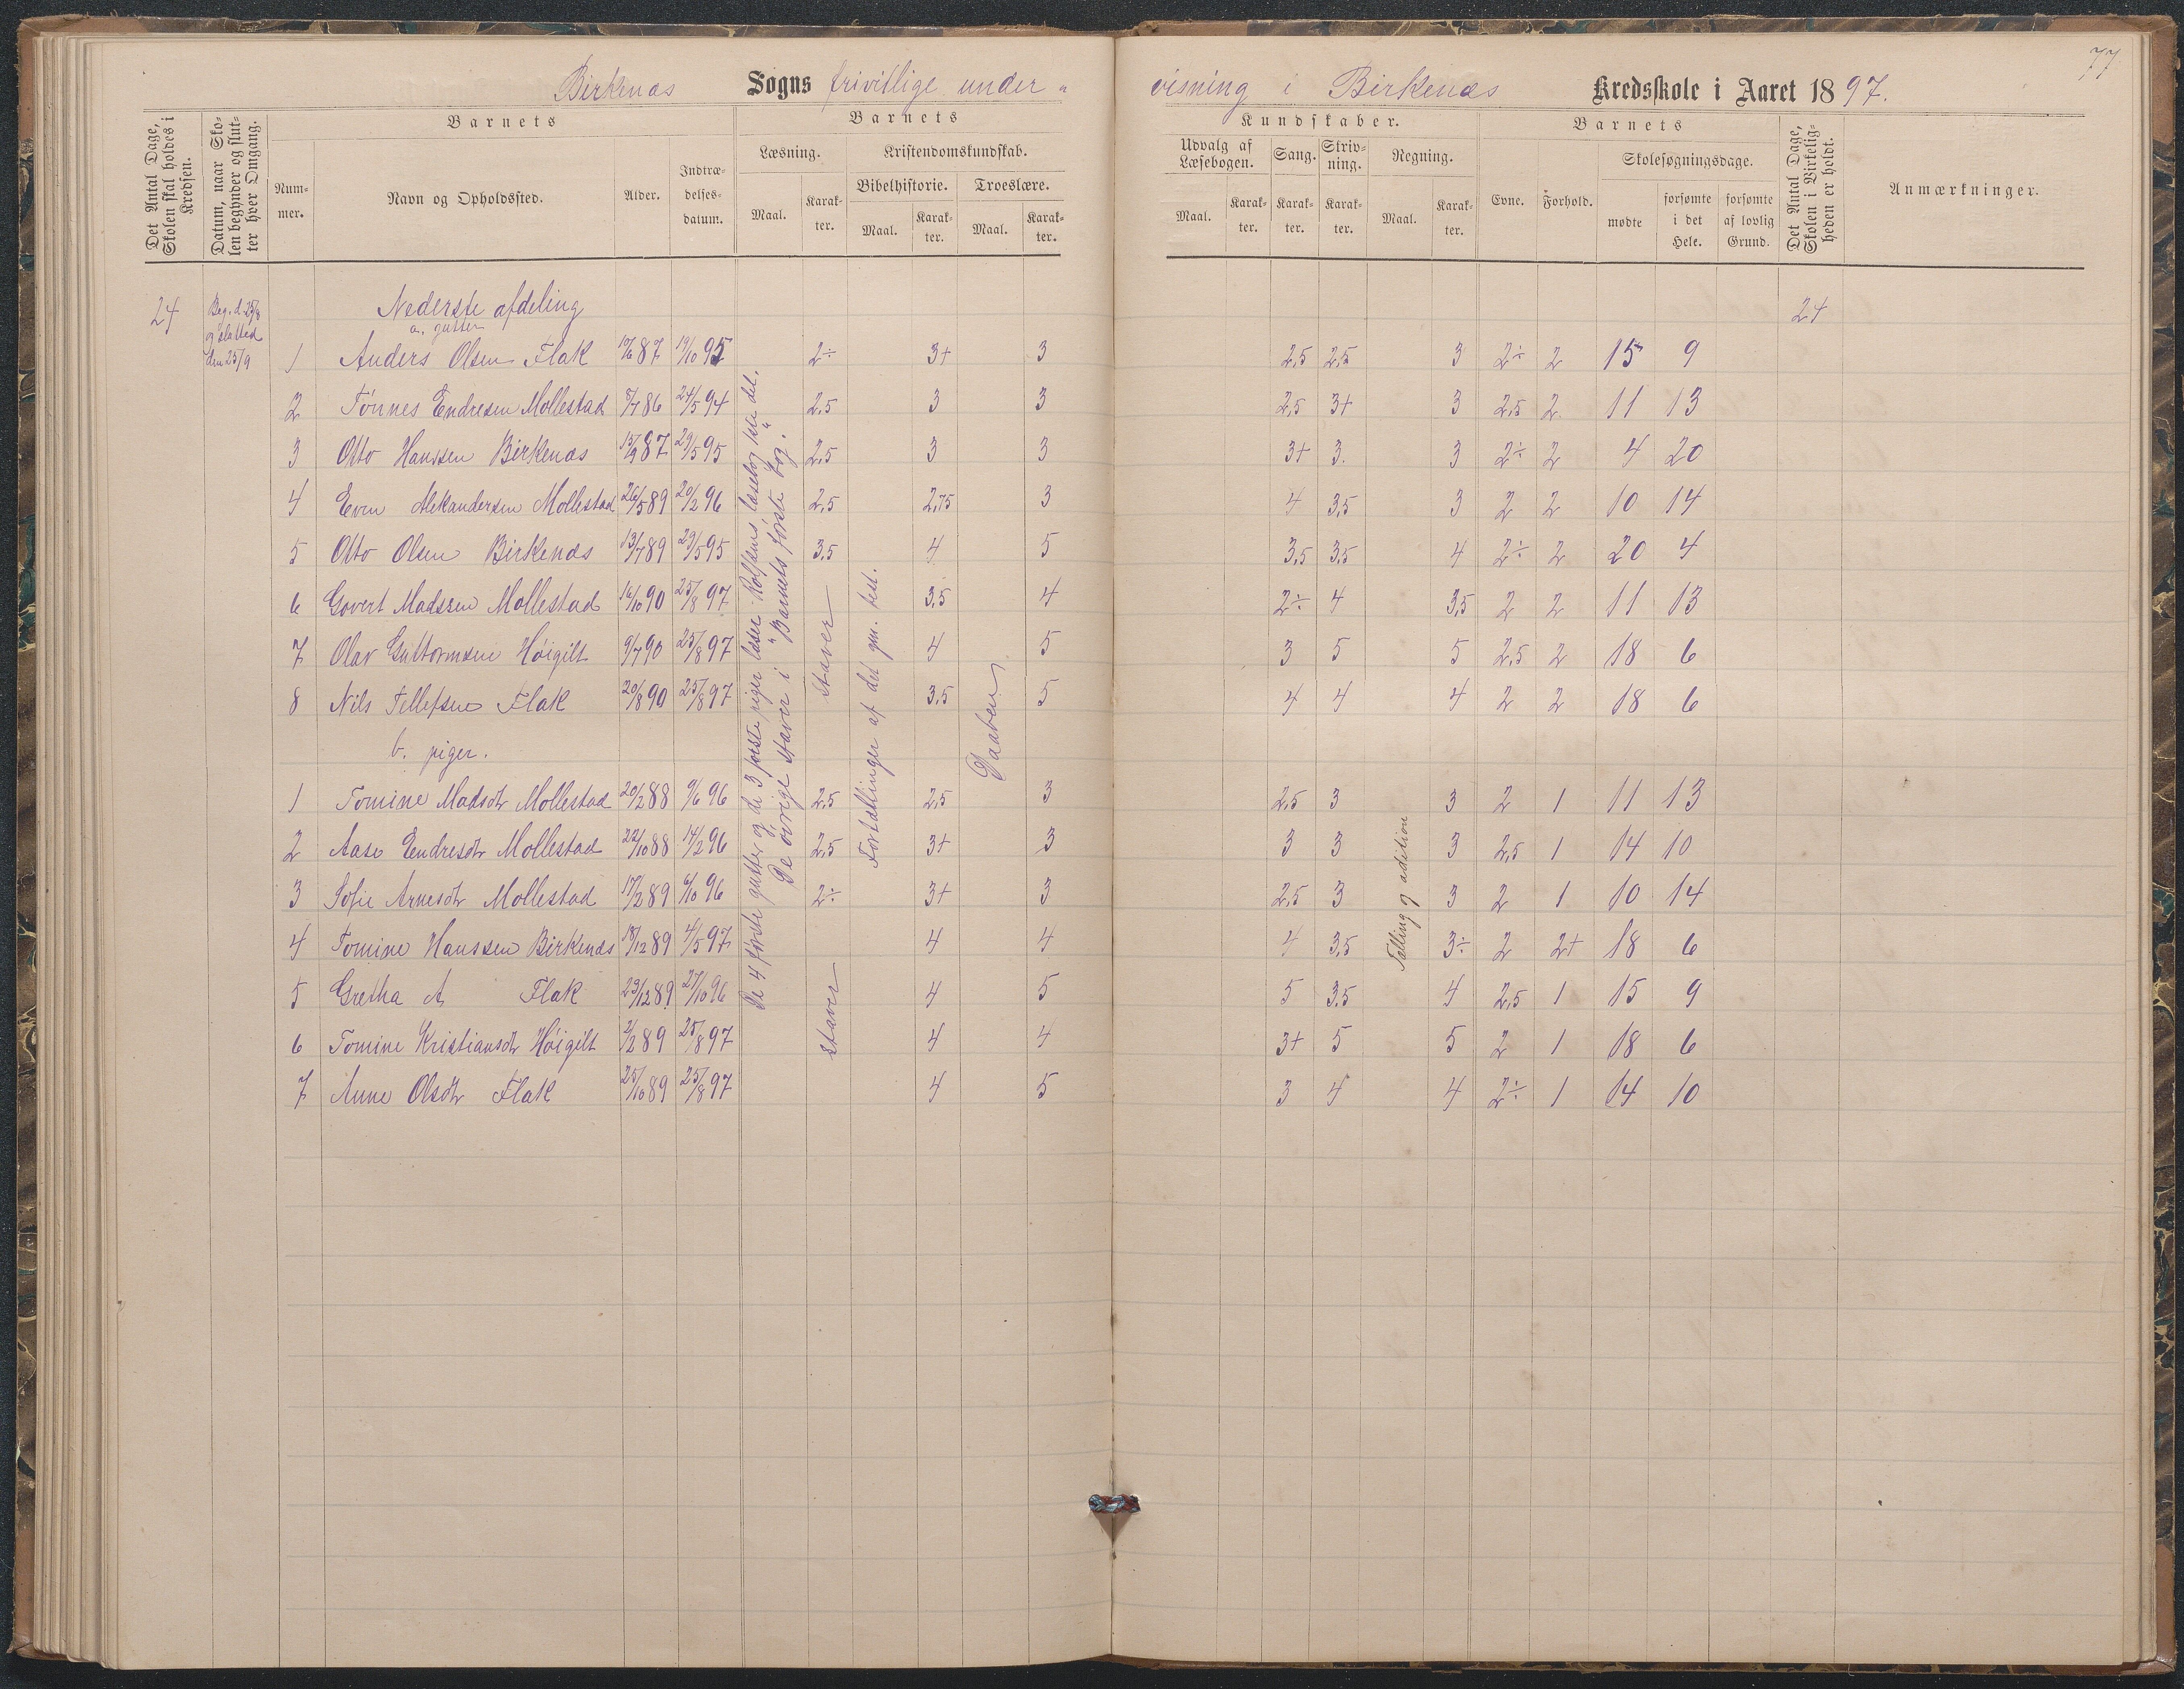 77
Birkenæs Sogns frivillige under- visning i Birkenæs Kredsskole i Aaret 1897.
Det Antal Dage, Skolen skal holdes i Kredsen.
Datum, naar Skolen begynder og slutter hver Omgang.
Barnets
Nummer.
Navn og Opholdssted.
Alder.
Indtrædelsesdatum.
Barnets
Læsning.
Maal.
Karakter.
Kristendomskundskab.
Bibelhistorie.
Maal.
Karakter.
Troeslære.
Maal.
Karakter.
Kundskaber.
Udvalg af Læsebogen.
Maal.
Karakter.
Sang.
Karakter.
Skrivning.
Karakter.
Regning.
Maal.
Karakter.
Barnets
Evne.
Forhold.
Skolesøgningsdage.
mødte
forsømte i det Hele.
forsømte af lovlig Grund.
Det Antal Dage, Skolen i Virkeligheden er holdt.
Anmærkninger.
24 Beg. d. 25/8 Nederste afdeling 24
og slutted a. gutter
den 25/9
1 Anders Olsen Flak 87 19/10 95 2÷ 3+ 3 2,5 2,5 3 2÷ 2 15 9
2 Tønnes Endresen Mollestad 5/7 86 24/5 94 2,5 3 3 2,5 3+ 3 2,5 2 11 13
3 Otto Hanssen Birkenæs 15/9 87 29/5 95 2,5 3 3 3+ 3. 3 2÷ 2 4 20
4 Even Aleksandersen Mollestad 26/5 89 20/2 96 2,5 2,75 3 4 3,5 3 2 2 10 14
5 Otto Olsen Birkenæs 13/7 89 29/5 95 3,5 4 5 3,5 3,5 4 2÷ 2 20 4
6 Govert Madssen Mollestad 16/10 90 25/8 97 3,5 4 2÷ 4 3,5 2 2 11 13
7 Olav Guttormsen Høigilt 9/7 90 25/8 97 4 5 3 5 5 2,5 2 18 6
8 Nils Tellefsen Flak 20/8 90 25/8 97 3,5 5 4 4 4 2 2 18 6
b. piger.
1 Tomine Madsdtr Mollestad 20/2 88 9/6 96 2,5 2,5 3 2,5 3 3 2 1 11 13
2 Aase Endresdtr Mollestad 22/10 88 14/2 96 2,5 3+ 3 3 3 3 2,5 1 14 10
3 Sofie Arnesdtr Mollestad 17/2 89 6/10 96 2÷ 3+ 3 2,5 3 3 2 1 10 14
4 Tomine Hanssen Birkenæs 18/12 89 4/5 97 4 4 4 3,5 3÷ 2 2+ 18 6
5 Gretha A Flak 23/12 89 27/10 96 4 5 5 3,5 4 2,5 1 15 9
6 Tomine Kristiansdtr Høigilt 2/2 89 25/8 97 4 4 3+ 5 5 2 1 18 6
7 Anne Olsdtr Flak 25/10 89 25/8 97 4 5 3 4 4 2÷ 1 14 10
De 4 første gutter og de 3 første piger læser Rolfsens læsebog del.
De øvrige staver i "Barnets første bog".
staver
staver
Fortællinger af det gm. test.
Daaben
Tælling og adition